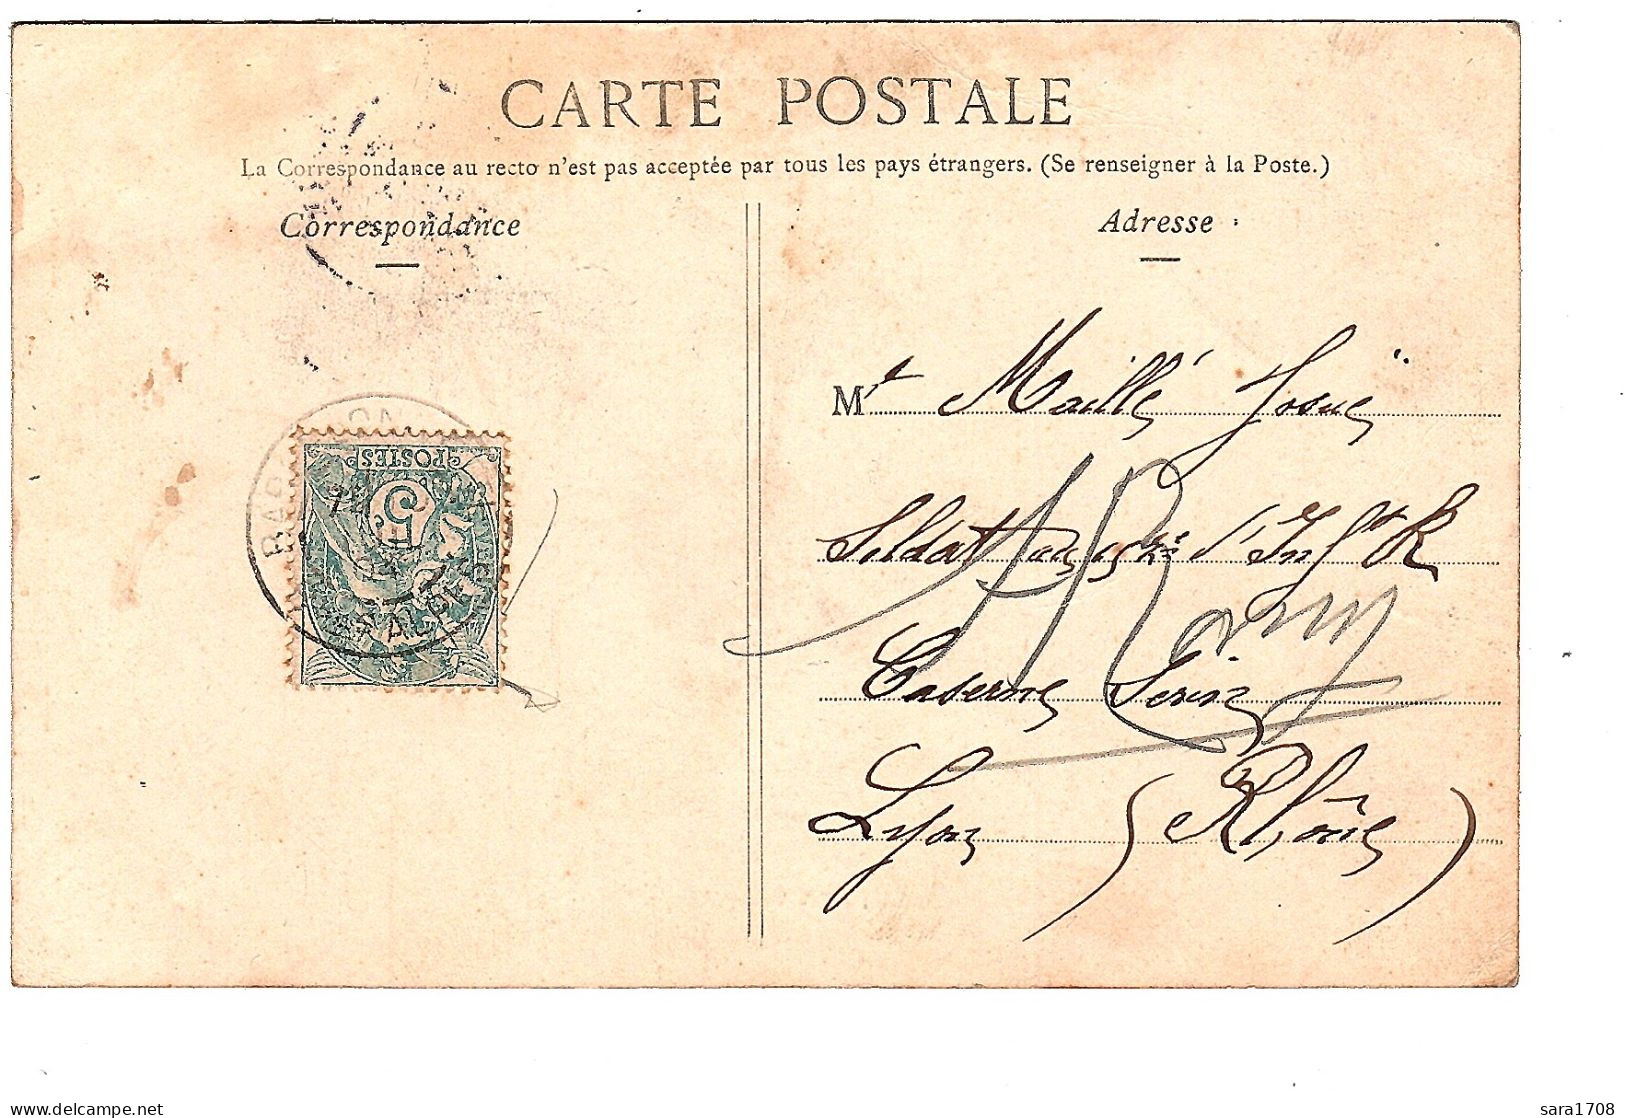 CARTE POSTALE
La Correspondance au recto n'est pas acceptée par tous les pays étrangers. (Se renseigner à la Poste.)
Correspondance
Adresse
POSTES
5
Mr Maillé Josué
Soldat au d'Inft
Caserne Serin
Lyon (Rhône)
delcampe.net
sara1708